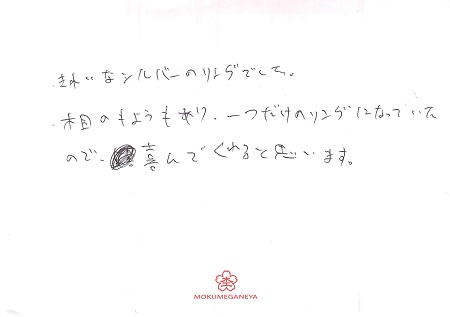 きれいなシルバーのリングでした。
木目のもようもあり、一つだけのリングになっていた
ので、喜んでくれると思います。
MOKUMEGANEYA